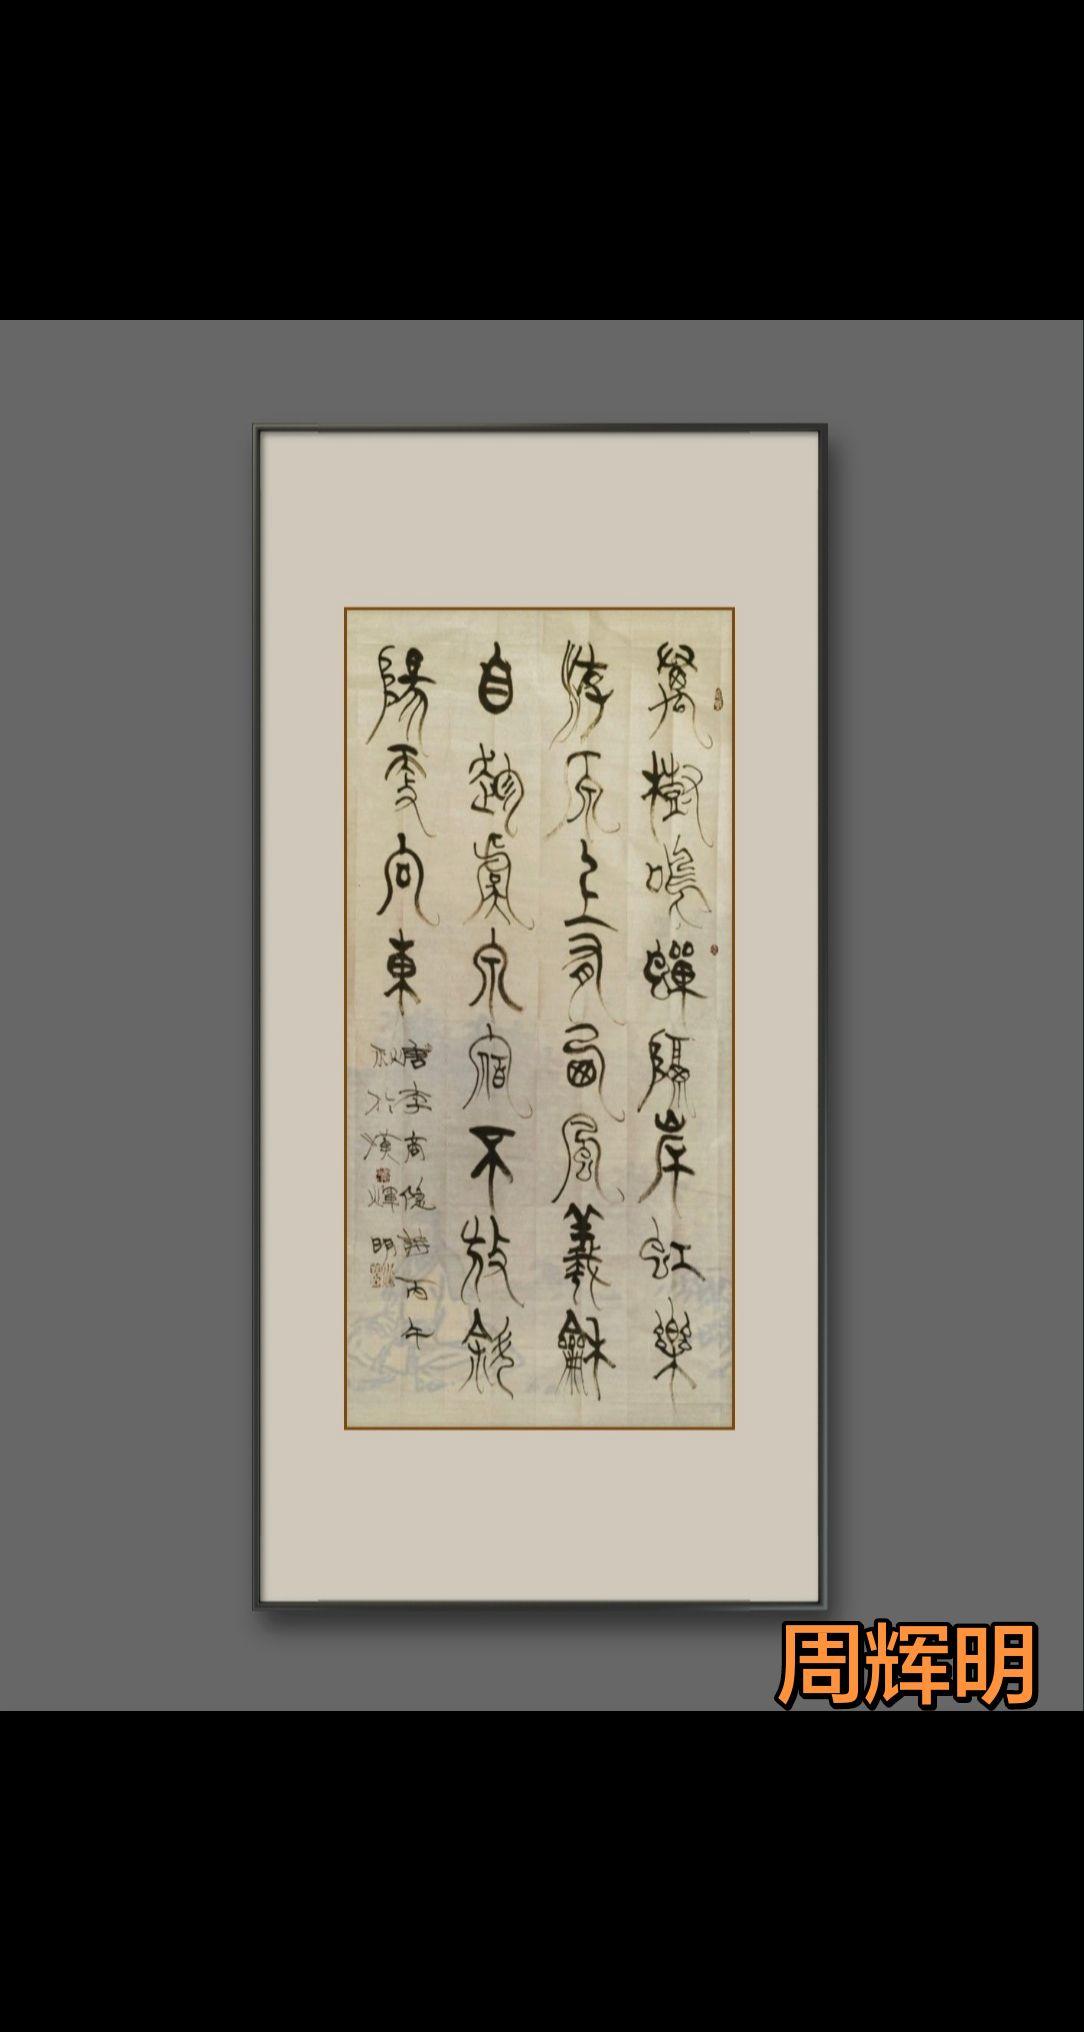 萬樹鳴蟬隔岸虹樂
游原上有西風羲龢
自趁虞泉宿不放斜
陽更向東
唐李商隱詩丙午
秋於漢輝明
周辉明